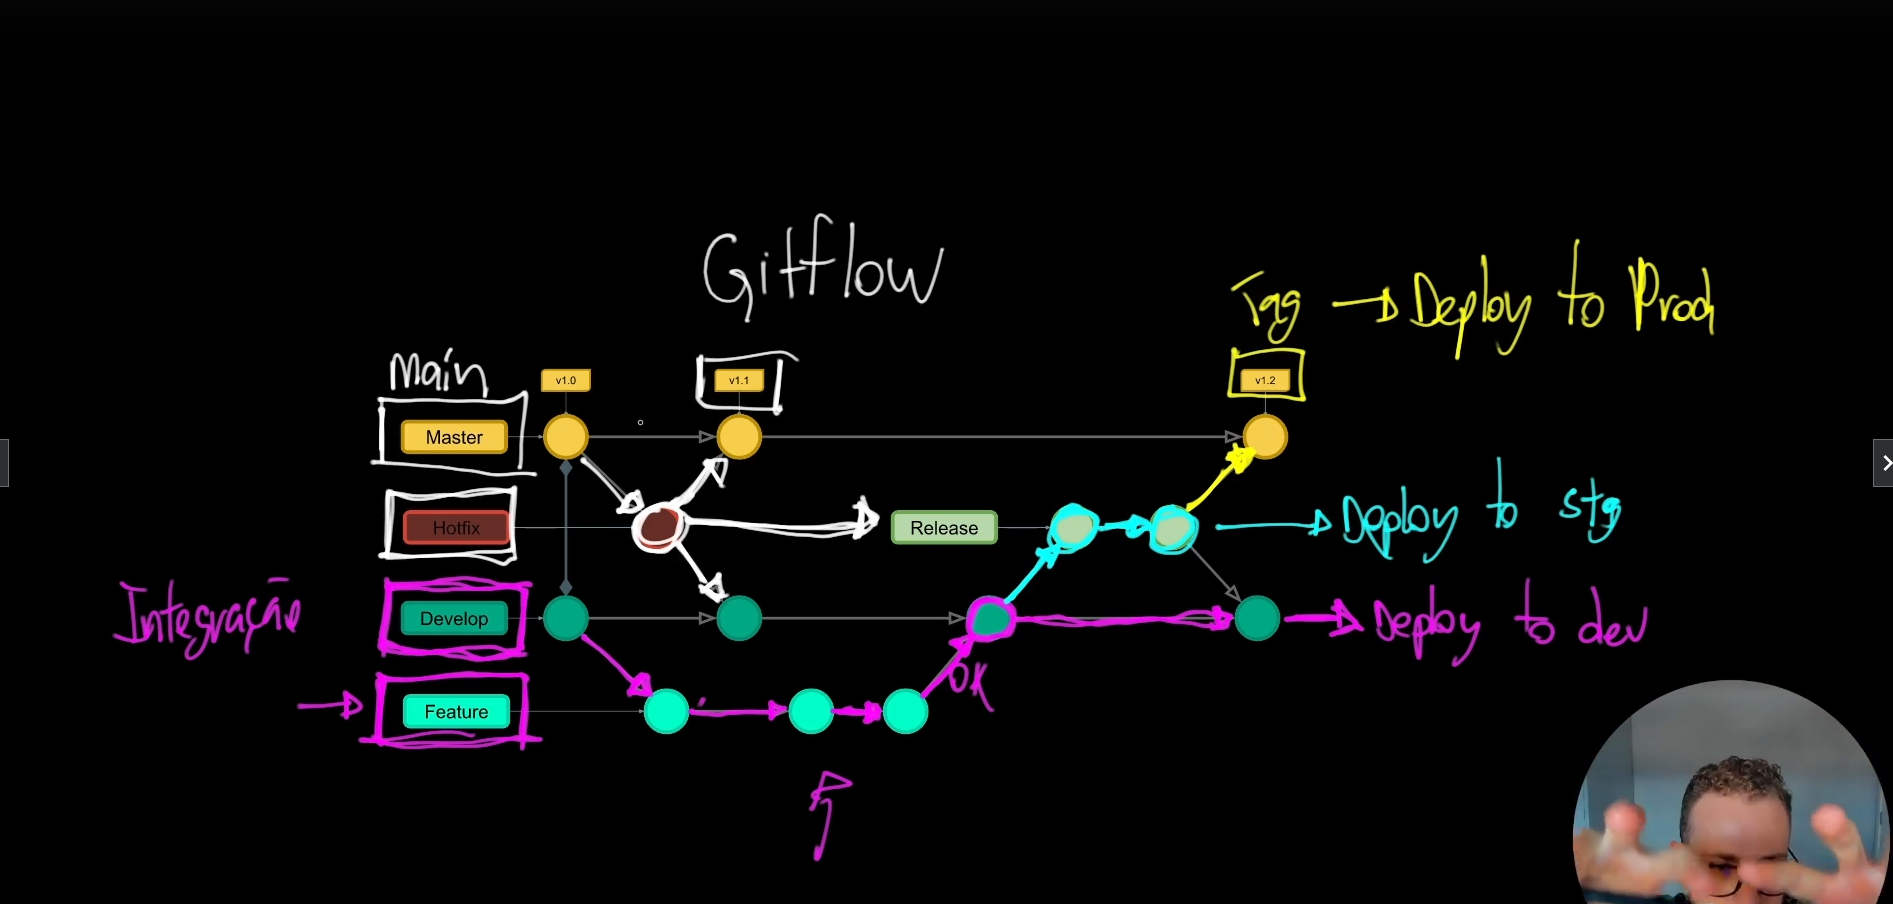 Gitflow
Tag → Deploy to Prod
Main
v1.0
v1.1
v1.2
Master
Hotfix
Release
Deploy to stg
Integração
Develop
Deploy to dev
OK
Feature